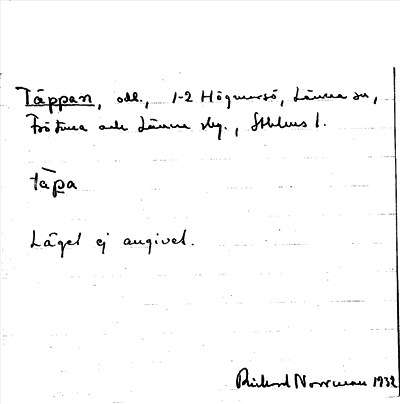 Täppan, odl., 1-2 Högmarsö, Länna sn,
Frötuna och Länna skg., Sthlms l.
tāpa
Läget ej angivet.
Rickard Norrman 1932